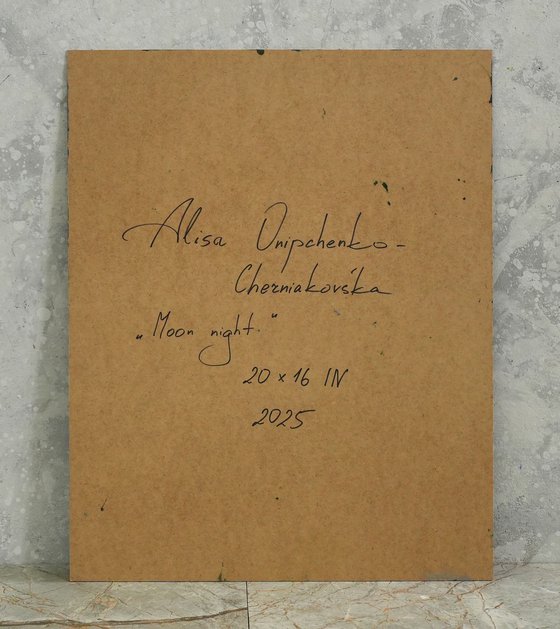 Alisa Onipchenko-
Cherniakovśka
„Moon night."
20 x 16 IN
2025